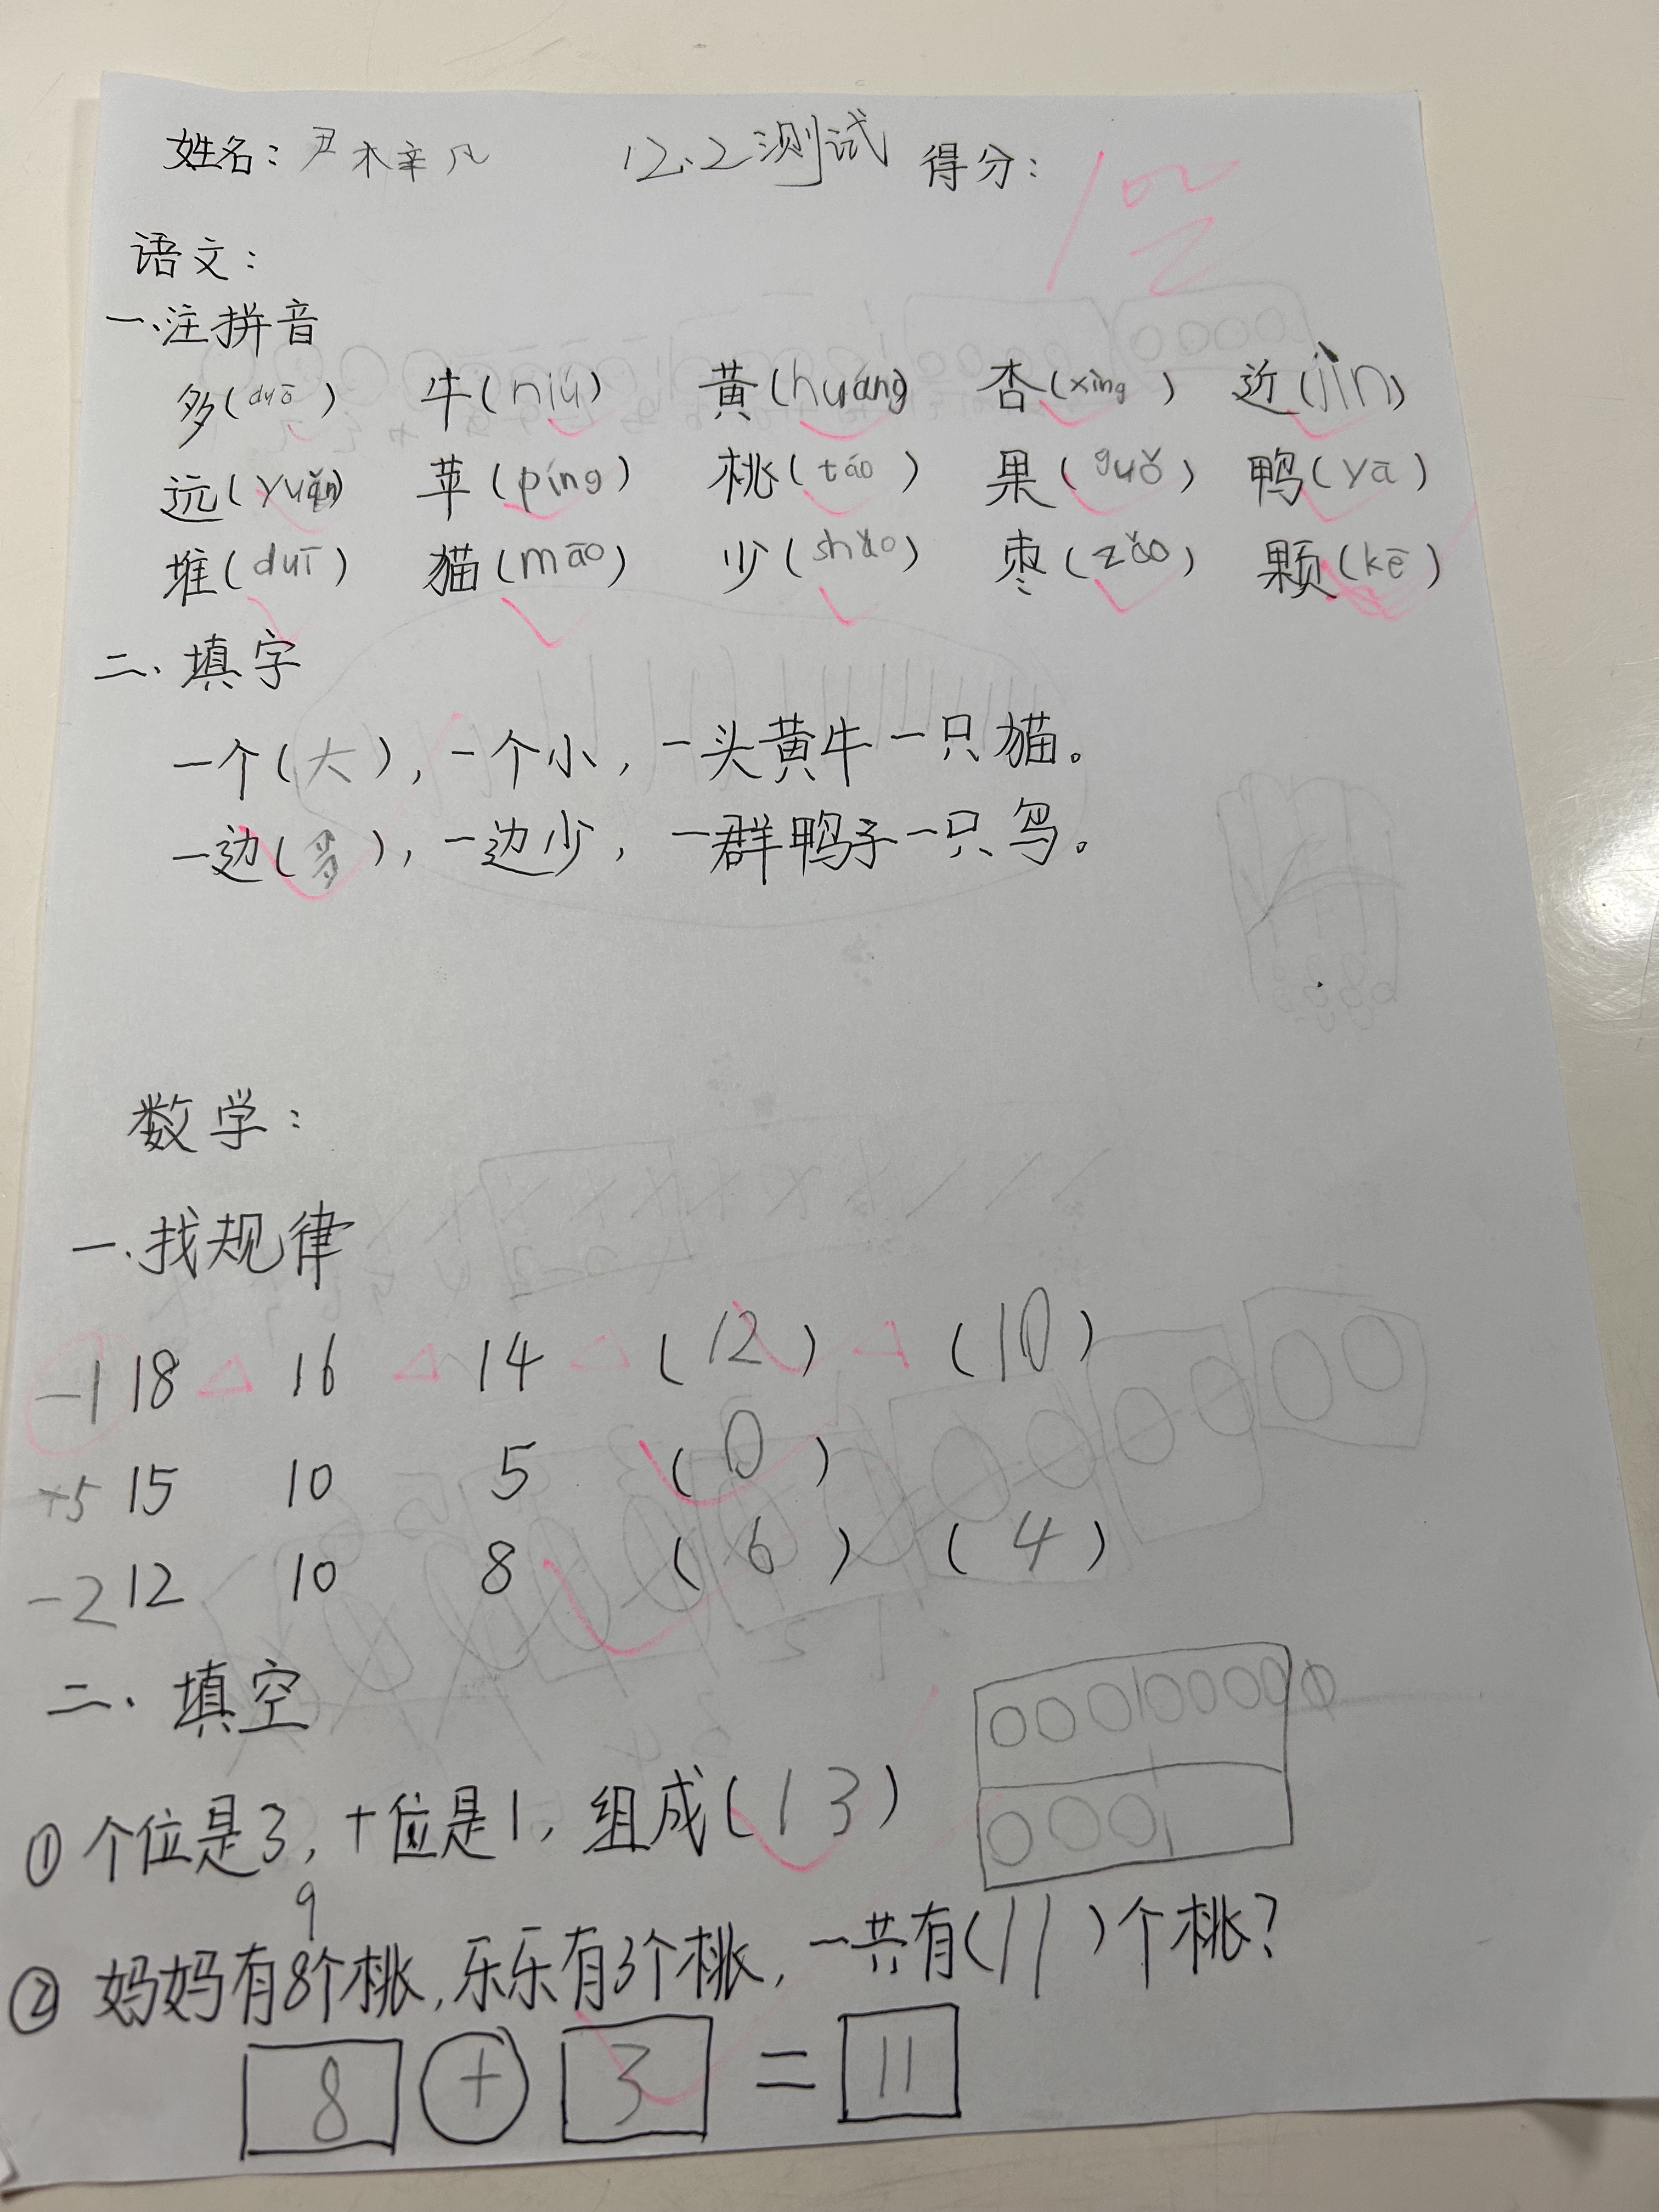 姓名：尹木辛凡 12.2测试 得分：100
语文：
一、注拼音
多(duō) 牛(niú) 黄(huáng) 杏(xìng) 近(jìn)
远(yuǎn) 苹(píng) 桃(táo) 果(guǒ) 鸭(yā)
堆(duī) 猫(māo) 少(shǎo) 枣(zǎo) 颗(kē)
二、填字
一个(大)，一个小，一头黄牛一只猫。
一边(多)，一边少，一群鸭子一只鸟。
数学：
一、找规律
-1 18 16 14 (12) (10)
+5 15 10 5 (0)
-2 12 10 8 (6) (4)
二、填空
① 个位是3，十位是1，组成(13)
9
② 妈妈有8个桃，乐乐有3个桃，一共有(11)个桃？
8 + 3 = 11